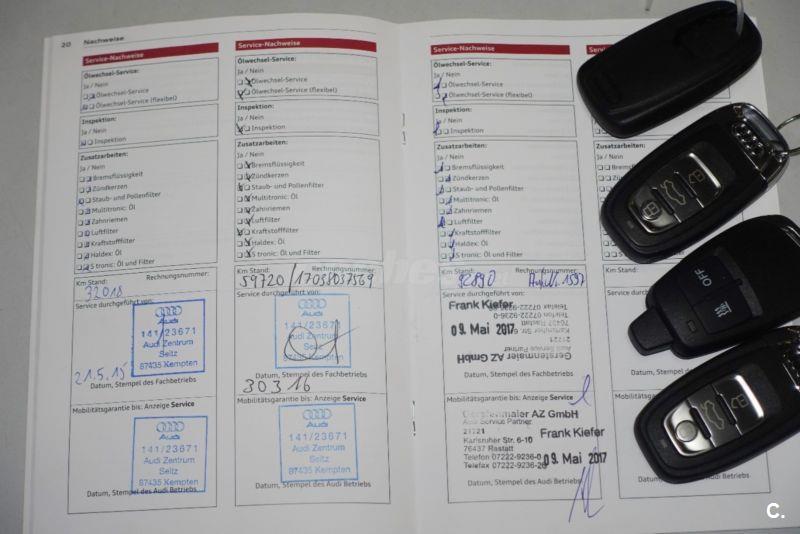 20 Nachweise
Service-Nachweise
Ölwechsel-Service:
Ja / Nein
Ölwechsel-Service
Ölwechsel-Service (flexibel)
Inspektion:
Ja / Nein
Inspektion
Zusatzarbeiten:
Ja / Nein
Bremsflüssigkeit
Zündkerzen
Staub- und Pollenfilter
Multitronic: Öl
Zahnriemen
Luftfilter
Kraftstofffilter
Haldex: Öl
S tronic: Öl und Filter
Km Stand: Rechnungsnummer:
32018
Service durchgeführt von:
Audi
141/23671
Audi Zentrum
Seitz
87435 Kempten
21.5.15
Datum, Stempel des Fachbetriebs
Mobilitätsgarantie bis: Anzeige Service
Audi
141/23671
Audi Zentrum
Seitz
87435 Kempten
Datum, Stempel des Audi Betriebs
Service-Nachweise
Ölwechsel-Service:
Ja / Nein
Ölwechsel-Service
Ölwechsel-Service (flexibel)
Inspektion:
Ja / Nein
Inspektion
Zusatzarbeiten:
Ja / Nein
Bremsflüssigkeit
Zündkerzen
Staub- und Pollenfilter
Multitronic: Öl
Zahnriemen
Luftfilter
Kraftstofffilter
Haldex: Öl
S tronic: Öl und Filter
Km Stand: Rechnungsnummer:
59720/17038037569
Service durchgeführt von:
Audi
141/23671
Audi Zentrum
Seitz
87435 Kempten
Datum, Stempel des Fachbetriebs
30.3.16
Mobilitätsgarantie bis: Anzeige Service
Audi
141/23671
Audi Zentrum
Seitz
87435 Kempten
Datum, Stempel des Audi Betriebs
Service-Nachweise
Ölwechsel-Service:
Ja / Nein
Ölwechsel-Service
Ölwechsel-Service (flexibel)
Inspektion:
Ja / Nein
Inspektion
Zusatzarbeiten:
Ja / Nein
Bremsflüssigkeit
Zündkerzen
Staub- und Pollenfilter
Multitronic: Öl
Zahnriemen
Luftfilter
Kraftstofffilter
Haldex: Öl
S tronic: Öl und Filter
Km Stand: Rechnungsnummer:
92890
Service durchgeführt von:
Frank Kiefer
09. Mai 2017
Gerstenmaier AZ GmbH
Audi Service Partner
21721
Karlsruher Str. 6-10
76437 Rastatt
Telefon 07222-9236-0
Telefax 07222-9236-26
Datum, Stempel des Fachbetriebs
Mobilitätsgarantie bis: Anzeige Service
Gerstenmaier AZ GmbH
Audi Service Partner
21721
Karlsruher Str. 6-10
76437 Rastatt
Telefon 07222-9236-0
Telefax 07222-9236-26
Frank Kiefer
09. Mai 2017
Datum, Stempel des Audi Betriebs
Service-Nachweise
Datum, Stempel des Audi Betriebs
OFF
C.